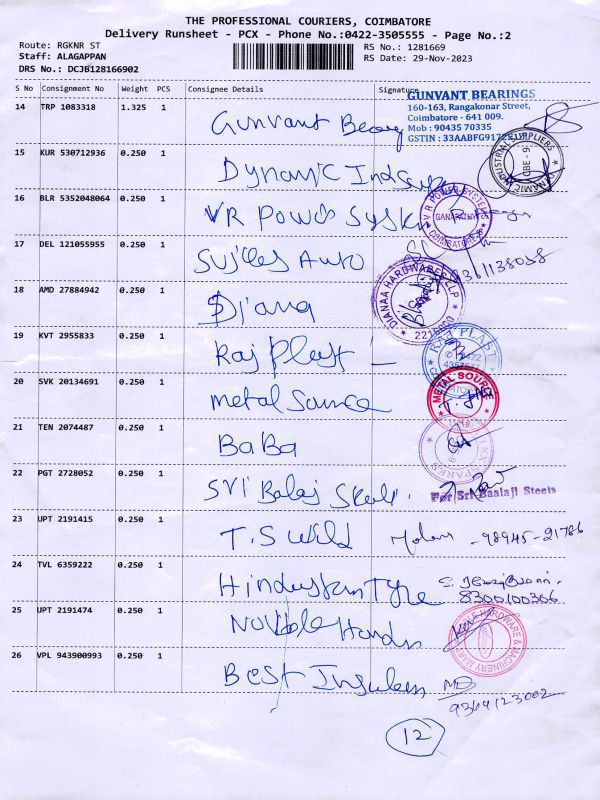 THE PROFESSIONAL COURIERS, COIMBATORE
Delivery Runsheet - PCX - Phone No.:0422-3505555 - Page No.:2
Route: RGKNR ST
RS No.: 1281669
Staff: ALAGAPPAN
RS Date: 29-Nov-2023
DRS No.: DCJB128166902
S No Consignment No Weight PCS Consignee Details Signature
GUNVANT BEARINGS
160-163, Rangakonar Street,
Coimbatore - 641 009.
Mob : 90435 70335
GSTIN : 33AABFG9172
14 TRP 1083318 1.325 1 Gunvant
15 KUR 530712936 0.250 1 Dynamic
16 BLR 5352048064 0.250 1 VR Power System
VR POWER SYSTEMS
GANAPATHY
COIMBATORE
17 DEL 121055955 0.250 1 Auto
18 AMD 27884942 0.250 1 Diana
DIANAA HARDWARES LLP
2216000
19 KVT 2955833 0.250 1 Raj Plast
RAJ PLAST
0422
20 SVK 20134691 0.250 1 metal Source
METAL SOURCE
21 TEN 2074487 0.250 1 BaBa
22 PGT 2728052 0.250 1 Sri Balaj
For Sri Baalaji Steels
23 UPT 2191415 0.250 1 T.S Wild
98945-21786
24 TVL 6359222 0.250 1 Hindustan Tyre
8300100306
25 UPT 2191474 0.250 1
HARDWARE & MACHINERY MART
26 VPL 943900993 0.250 1 Best
9364123002
12